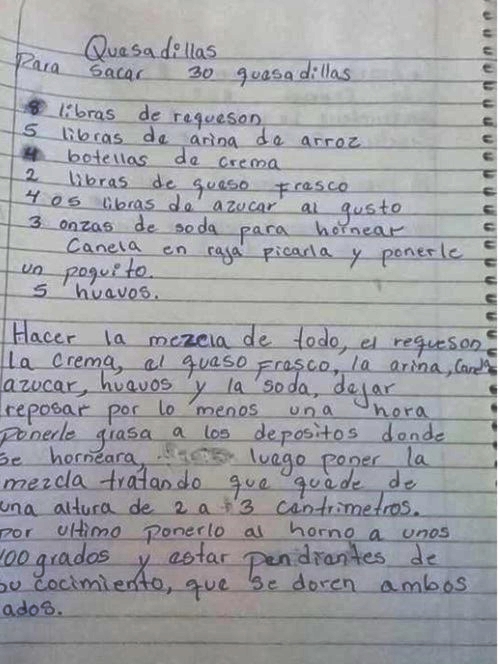 Quesadillas
Para sacar 30 quesadillas
8 libras de requeson
5 libras de arina de arroz
4 botellas de crema
2 libras de queso Frasco
4 o 5 libras de azucar al gusto
3 onzas de soda para hornear
Canela en raja picarla y ponerle
un poquito.
5 huavos.
Hacer la mezcla de todo, el requeson
La crema, el quaso Frasco, la arina,
azucar, huavos y la soda, dejar
reposar por lo menos una hora
Ponerle grasa a los depositos donde
se horneara, luego poner la
mezcla tratando que quede de
una altura de 2 a 3 cantrimetros.
Por ultimo Ponerlo al horno a unos
100 grados y astar Pendiantes de
su cocimiento, que se doren ambos
ados.